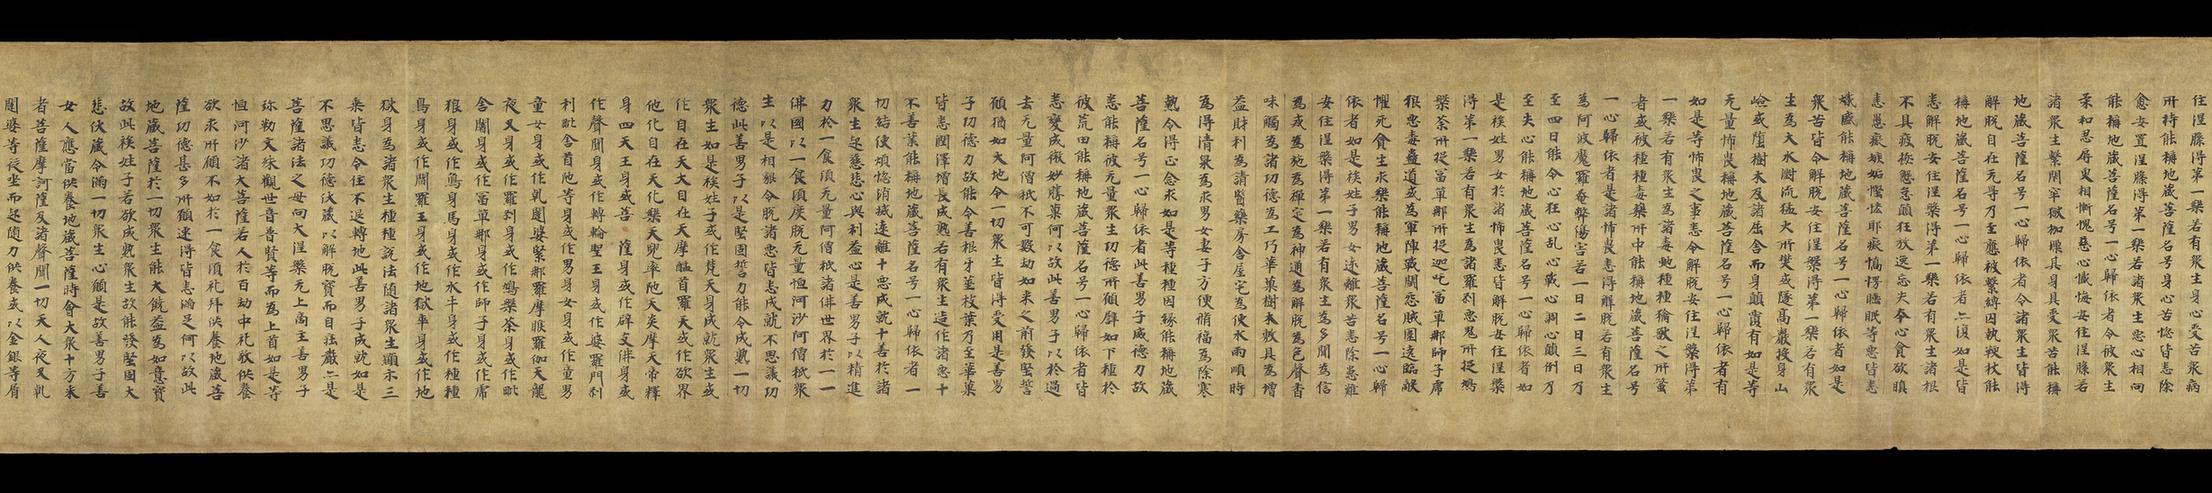 住涅槃得第一樂若有衆生身心受苦衆病
所持能稱地藏菩薩名号身心苦惱皆悉除
愈安置涅槃得第一樂若諸衆生惡心相向
能稱地藏菩薩名号一心歸依者令彼衆生
柔和忍辱相慚愧慈心懺悔安住涅槃若
諸衆生繫閉牢獄枷具身具受衆苦能稱
地藏菩薩名号一心歸依者令諸衆生皆得
解脫自在无㝵乃至應被繫縛囚執鞭杖能
稱地藏菩薩名号一心歸依者亦復如是皆
悉解脫安住涅槃得第一樂若有衆生諸根
不具疲極懈怠顛狂放逸忘失本心貪欲瞋
恚愚癡嫉妬慳悋耶癡憍慢睡眠等惡皆悉
熾盛能稱地藏菩薩名号一心歸依者如是
衆苦皆令解脫安住涅槃得第一樂若有衆
生為大水漂流猛火所焚或墜高巖投身山
嶮或墮樹木及諸舍而身顛有如是等
无量怖畏稱地藏菩薩名号一心歸依者有
如是等怖畏之事悉令解脫安住涅槃得第
一樂若有衆生為諸毒虵種種之所螫
者或被種種毒藥所中能稱地藏菩薩名号
一心歸依者是諸怖畏悉得解脫若有衆生
為阿波魔羅奄弊傷害若一日二日三日乃
至四日能令心狂心乱心戰心調心顛倒乃
至失心能稱地藏菩薩名号一心歸依者如
是族姓男女於諸怖畏悉皆解脫安住涅槃
得第一樂若有衆生為諸羅刹惡鬼所捉鳩
槃荼所捉富單那所捉迦吒富單那師子虎
狼惡毒蠱道或為軍陣戰鬪怨賊圍遶臨
懼死貪生求樂能稱地藏菩薩名号一心歸
依者如是族姓子男女遠離衆苦悉除患難
安住涅槃得第一樂若有衆生為多聞為信
為戒為施為禪定為神通為解脫為色聲香
味觸為諸功德為工巧華菓樹木敷具為增
益財利為請醫藥房舍屋宅為使水雨順時
為得清泉為求男女妻子方便脩福為除寒
熱令得正念求如是等種種因緣能稱地藏
菩薩名号一心歸依者此善男子威德力故
悉能稱彼无量衆生功德所願譬如下種於
彼荒田能稱地藏菩薩名号一心歸依者皆
悉變成微妙勝菓何以故此善男子以於過
去无量阿僧祇不可數劫如来之前發堅誓
願猶如大地令一切衆生皆得受用是善男
子功德力故能令善根牙莖枝葉乃至華菓
皆悉潤澤增長成熟若有衆生造作諸惡十
不善業能稱地藏菩薩名号一心歸依者一
切結使煩惱消滅遠離十惡成就十善於諸
衆生起慈悲心與利益心是善男子以精進
力於一食頃无量阿僧祇諸佛世界於一一
佛國以一食頃度脫无量恒河沙阿僧祇衆
生以是相貌令脫諸惡皆悉成就不思議功
德此善男子以是堅固誓力能令成熟一切
衆生如是族姓子或作梵天身成就衆生或
作自在天大自在天摩醯首羅天或作欲界
他化自在天化樂天兜率陁天炎摩天帝釋
身四天王身或菩薩身或作辟支佛身或
作聲聞身或作轉輪聖王身或作婆羅門刹
利毗舍首陁等身或作男身女身或作童男
童女身或作乹闥婆緊那羅摩睺羅伽天龍
夜叉身或作羅刹身或作鳩槃荼身或作毗
舍闍身或作富單那身或作師子身或作虎
狼身或作鳥身馬身或作水牛身或作種種
鳥身或作閻羅王身或作地獄卒身或作地
獄身為諸衆生種種說法隨諸衆生顯示三
乘皆悉令住不退轉地此善男子成就如是
不思議功德伏藏以解脫寶而自莊嚴亦是
菩薩諸法之母向大涅槃无上商主善男子
弥勒文殊觀世音普賢等而為上首如是等
恒河沙諸大菩薩若人於百劫中礼敬供養
欲求所願不如於一食頃礼拜供養地藏菩
薩功德甚多所願速得皆悉滿足何以故此
地藏菩薩於一切衆生能大饒益為如意寶
故此族姓子若欲成熟衆生故能發堅固大
悲伏藏令滿一切衆生心願是故善男子善
女人應當供養地藏菩薩時會大衆十方来
者菩薩摩訶薩及諸聲聞一切天人夜叉乹
闥婆等從坐而起隨力供養或以金銀等屑